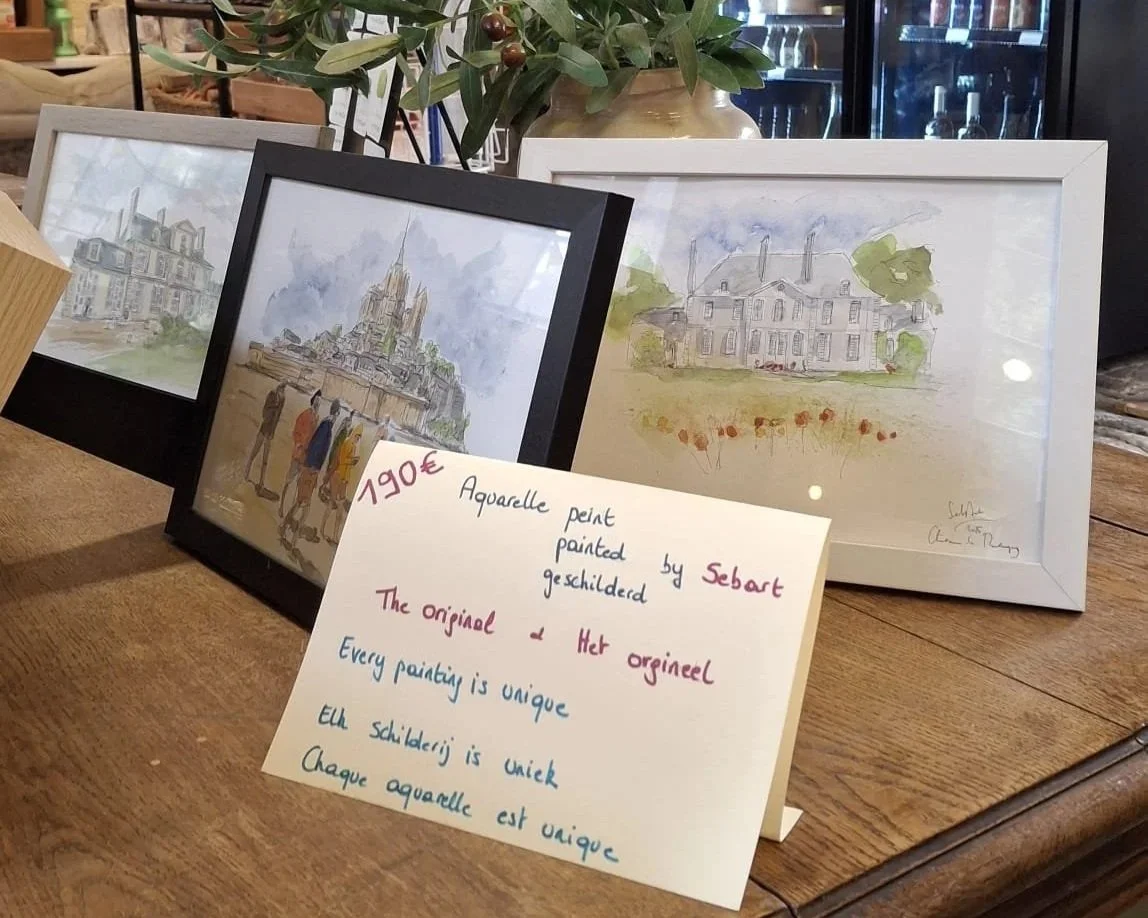 190€
Aquarelle peint
painted by Sebart
geschilderd
The original Het orgineel
Every painting is unique
Elk schilderij is uniek
Chaque aquarelle est unique